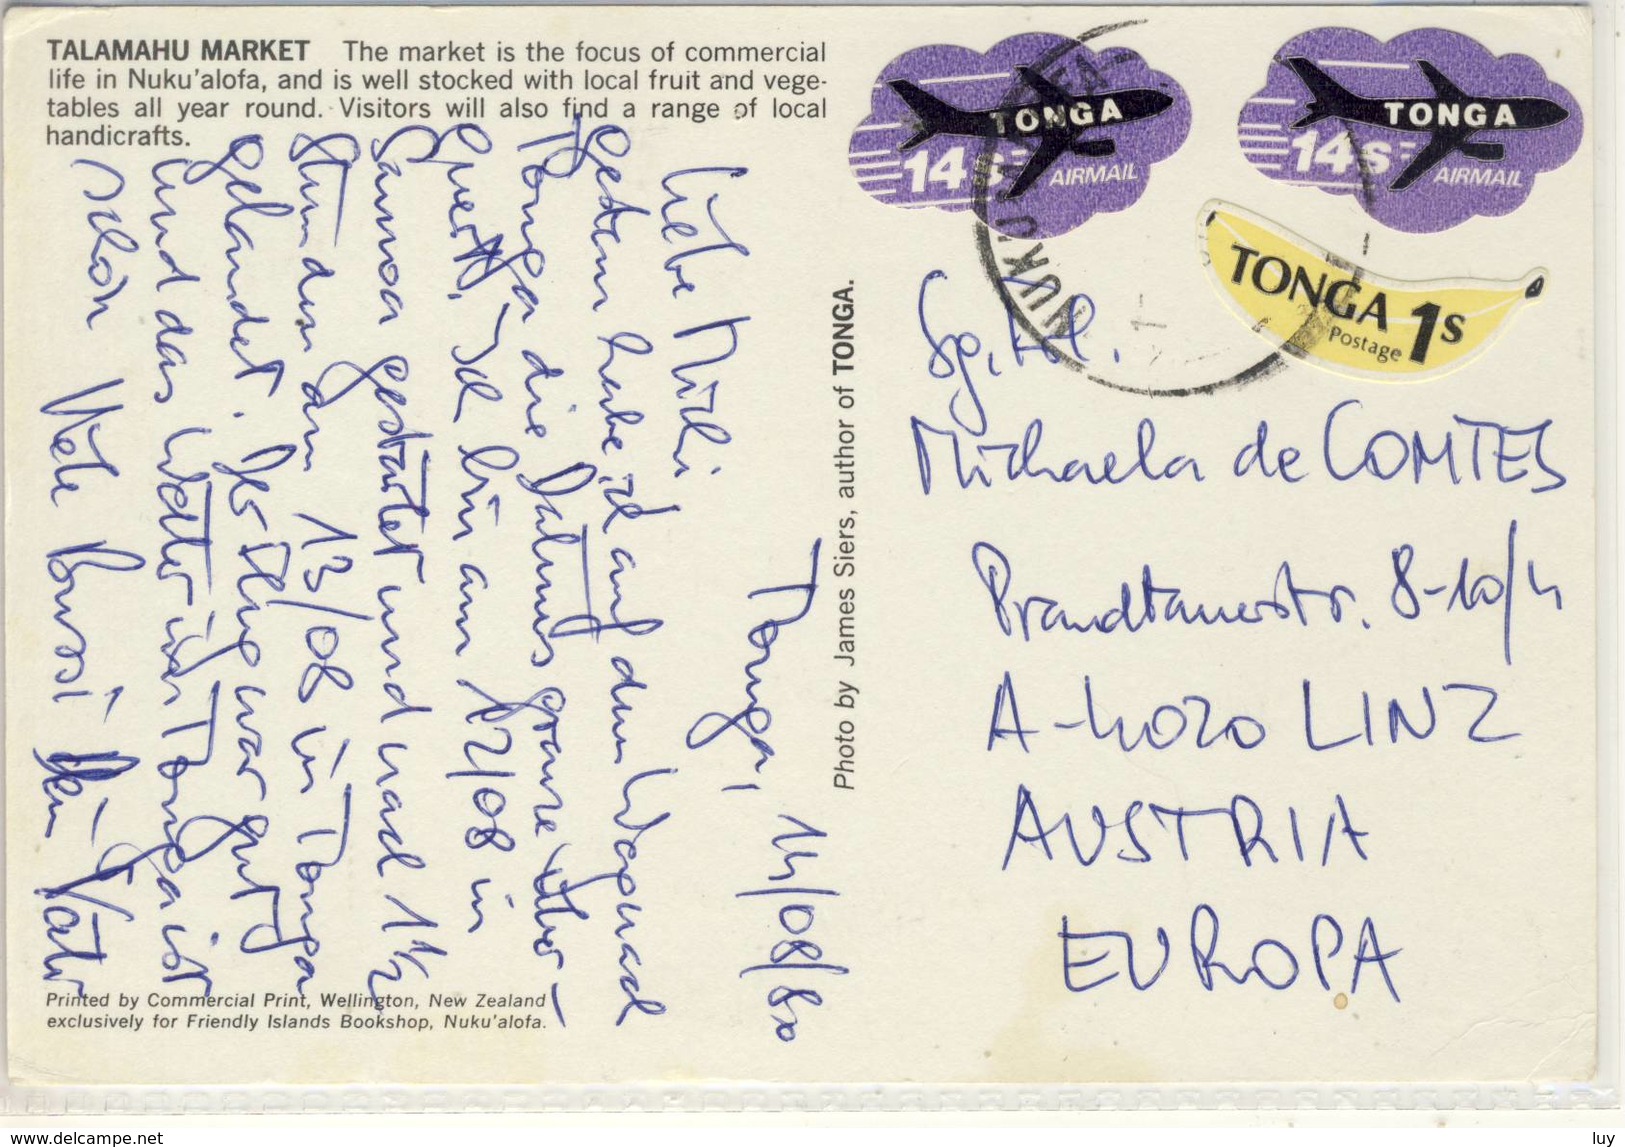 TALAMAHU MARKET The market is the focus of commercial
life in Nuku'alofa, and is well stocked with local fruit and vege-
tables all year round. Visitors will also find a range of local
handicrafts.
TONGA
14s
AIRMAIL
TONGA
14s
AIRMAIL
TONGA
Postage 1s
NUKU'ALOFA
Tonga, 14/08/80
Liebe Michi
gestern habe ich auf dem Weg nach
Tonga die Datumsgrenze über-
quert. Ich bin am 12/08 in
Samoa gestartet und nach 1 1/2
Stunden am 13/08 in Tonga
gelandet. Der Flug war gut
und das Wetter in Tonga ist
schön Viele Bussi Dein Vater
Photo by James Siers, author of TONGA.
Sg. Frl.
Michaela de COMTES
Prandtauerstr. 8-10/4
A-4020 LINZ
AUSTRIA
EUROPA
Printed by Commercial Print, Wellington, New Zealand
exclusively for Friendly Islands Bookshop, Nuku'alofa.
www.delcampe.net
luy